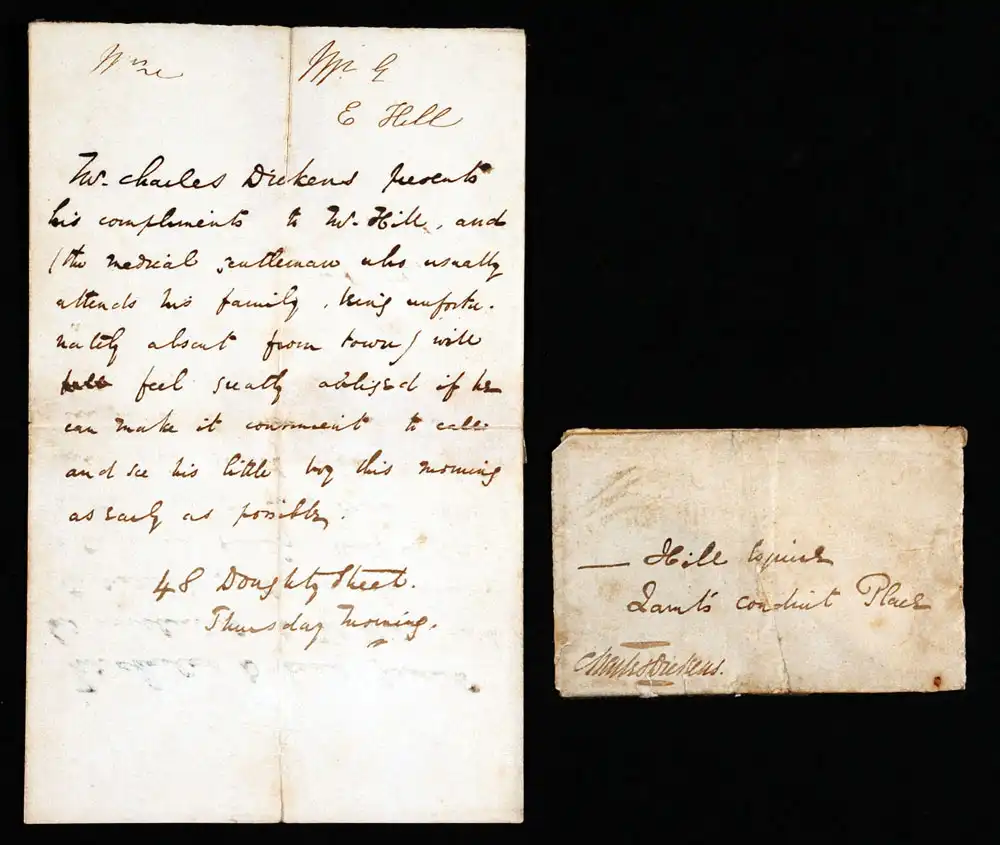 Mr. G
E Hill
Mr. Charles Dickens presents
his compliments to Mr. Hill, and
(the medical gentleman who usually
attends his family, being unfortu-
nately absent from town) will
feel greatly obliged if he
can make it convenient to call
and see his little boy this morning
as early as possible.
48 Doughty Street.
Thursday Morning.
— Hill Esquire
Lamb's Conduit Place
Charles Dickens.